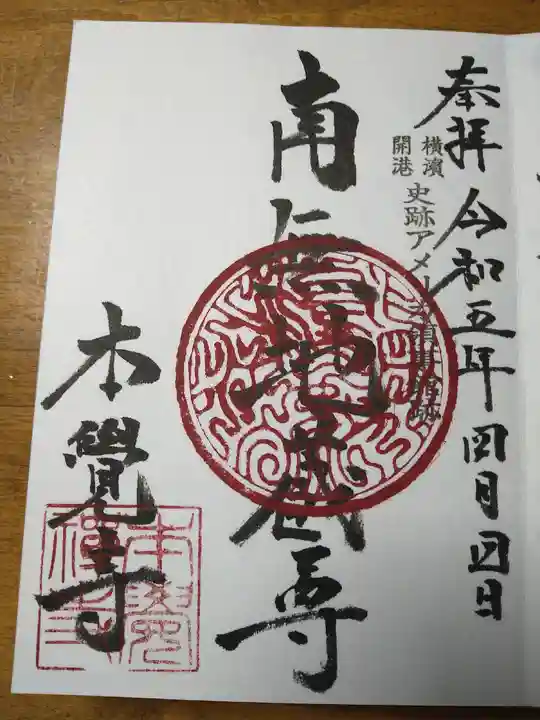 奉拝 令和五年四月四日
横濱
開港
史跡アメリカ領事館跡
南無地蔵尊
本覺寺